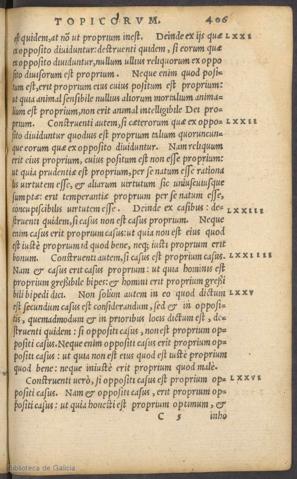 TOPICORVM. 406
est quidem, at nō ut proprium inest. Deinde ex ijs quæ LXXI
ex opposito diuiduntur: destruenti quidem, si eorum quæ
ex opposito diuiduntur, nullum ullius reliquorum ex oppo
sito diuisorum est proprium. Neque enim quod posi-
tum est, erit proprium eius cuius positum est proprium:
ut quia animal sensibile nullius aliorum mortalium anima-
lium est proprium, non erit animal intelligibile Dei pro-
prium. Construenti autem, si cæterorum quæ ex oppo- LXXII
sito diuiduntur quoduis est proprium talium quoruncun-
que eorum quæ ex opposito diuiduntur. Nam reliquum
erit eius proprium, cuius positum est non esse proprium:
ut quia prudentiæ est proprium, per se natum esse rationa
lis uirtutem esse, & aliarum uirtutum sic uniuscuiusque
sumptæ: erit temperantiæ proprium per se natum esse,
concupiscibilis uirtutem esse. Deinde ex casibus: de- LXXIII
struenti quidem, si casus non est casus proprium. Neque
enim casus erit proprium casus: ut quia non est eius quod
est iustè proprium id quod bene, neq; iusti proprium erit
bonum. Construenti autem, si casus est proprium casus. LXXIIII
Nam & casus erit casus proprium: ut quia hominis est
proprium gressibile bipes: & homini erit proprium gressi
bili bipedi dici. Non solùm autem in eo quod dictum LXXV
est secundum casus est considerandum, sed & in opposi-
tis, quemadmodum & in prioribus locis dictum est, de-
struenti quidem: si oppositi casus, non est proprium op-
positi casus. Neque enim oppositi casus erit proprium op-
positi casus: ut quia non est eius quod est iustè proprium
quod bene: neque iniustè erit proprium quod malè.
Construenti uerò, si oppositi casus est proprium op- LXXVI
positi casus. Nam & oppositi casus, erit proprium op-
positi casus: ut quia honesti est proprium optimum, &
C 5 inho
Biblioteca de Galicia